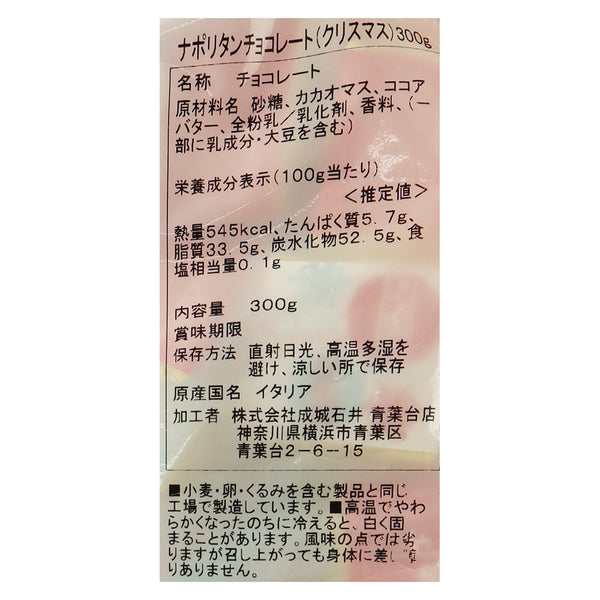 ナポリタンチョコレート(クリスマス)300g
名称 チョコレート
原材料名 砂糖、カカオマス、ココア
バター、全粉乳/乳化剤、香料、(一
部に乳成分・大豆を含む)
栄養成分表示(100g当たり)
<推定値>
熱量545kcal、たんぱく質5.7g、
脂質33.5g、炭水化物52.5g、食
塩相当量0.1g
内容量 300g
賞味期限
保存方法 直射日光、高温多湿を
避け、涼しい所で保存
原産国名 イタリア
加工者 株式会社成城石井 青葉台店
神奈川県横浜市青葉区
青葉台2-6-15
■小麦・卵・くるみを含む製品と同じ
工場で製造しています。■高温でやわ
らかくなったのちに冷えると、白く固
まることがあります。風味の点では劣
りますが召し上がっても身体に差し障
りありません。